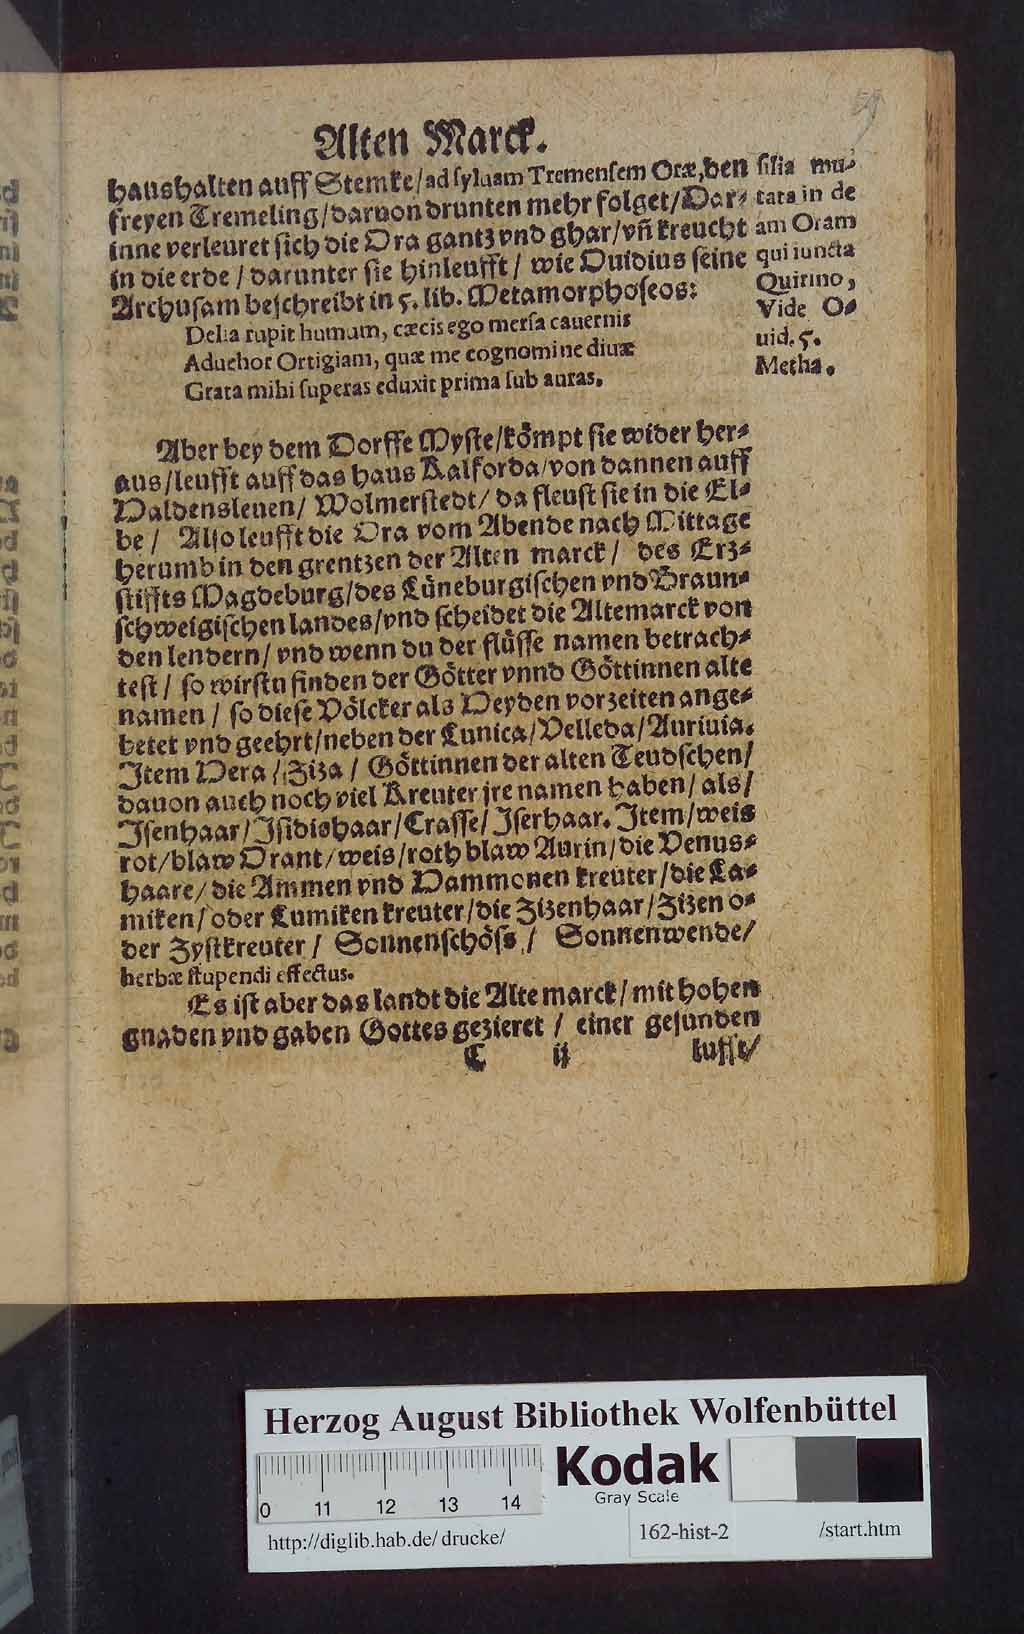 Alten Marck.
haushalten auff Stemke/ad syluam Tremensem Oræ,den
freyen Tremeling/daruon drunten mehr folget/Dar-
inne verleuret sich die Ora gantz vnd ghar/vñ kreucht
in die erde/darunter sie hinleufft/wie Ouidius seine
Archusam beschreibt in 5. lib. Metamorphoseos:
Delia rupit humum, cæcis ego mersa cauernis
Aduehor Ortigiam, quæ me cognomine diuæ
Grata mihi superas eduxit prima sub auras.
filia mu-
tata in de
am Oram
qui iuncta
Quirino,
Vide O-
uid. 5.
Metha.
Aber bey dem Dorffe Myste/kömpt sie wider her-
aus/leufft auff das haus Kalforda/von dannen auff
Haldensleuen/ Wolmerstedt/ da fleust sie in die El-
be/ Also leufft die Ora vom Abende nach Mittage
herumb in den grentzen der Alten marck/ des Ertz-
stiffts Magdeburg/des Lüneburgischen vnd Braun-
schweigischen landes/vnd scheidet die Altemarck von
den lendern/ vnd wenn du der flüsse namen betrach-
test/ so wirstu finden der Götter vnnd Göttinnen alte
namen/ so diese Völcker als Heyden vorzeiten ange-
betet vnd geehrt/neben der Lunica/Velleda/Auriuia.
Item Hera/Ziza/ Göttinnen der alten Teudschen/
dauon auch noch viel Kreuter jre namen haben/ als/
Isenhaar/Isidishaar/Crasse/Iserhaar. Item/weis
rot/blaw Orant/weis/roth blaw Aurin/die Venus-
haare/die Ammen vnd Hammonen kreuter/die La-
miken/oder Lumiken kreuter/die Zizenhaar/Zizen o-
der Zystkreuter/ Sonnenschöss/ Sonnenwende/
herbæ stupendi effectus.
Es ist aber das landt die Alte marck/mit hohen
gnaden vnd gaben Gottes gezieret/ einer gesunden
C ij lufft/
Herzog August Bibliothek Wolfenbüttel
0 11 12 13 14
Kodak
Gray Scale
http://diglib.hab.de/ drucke/ 162-hist-2 /start.htm